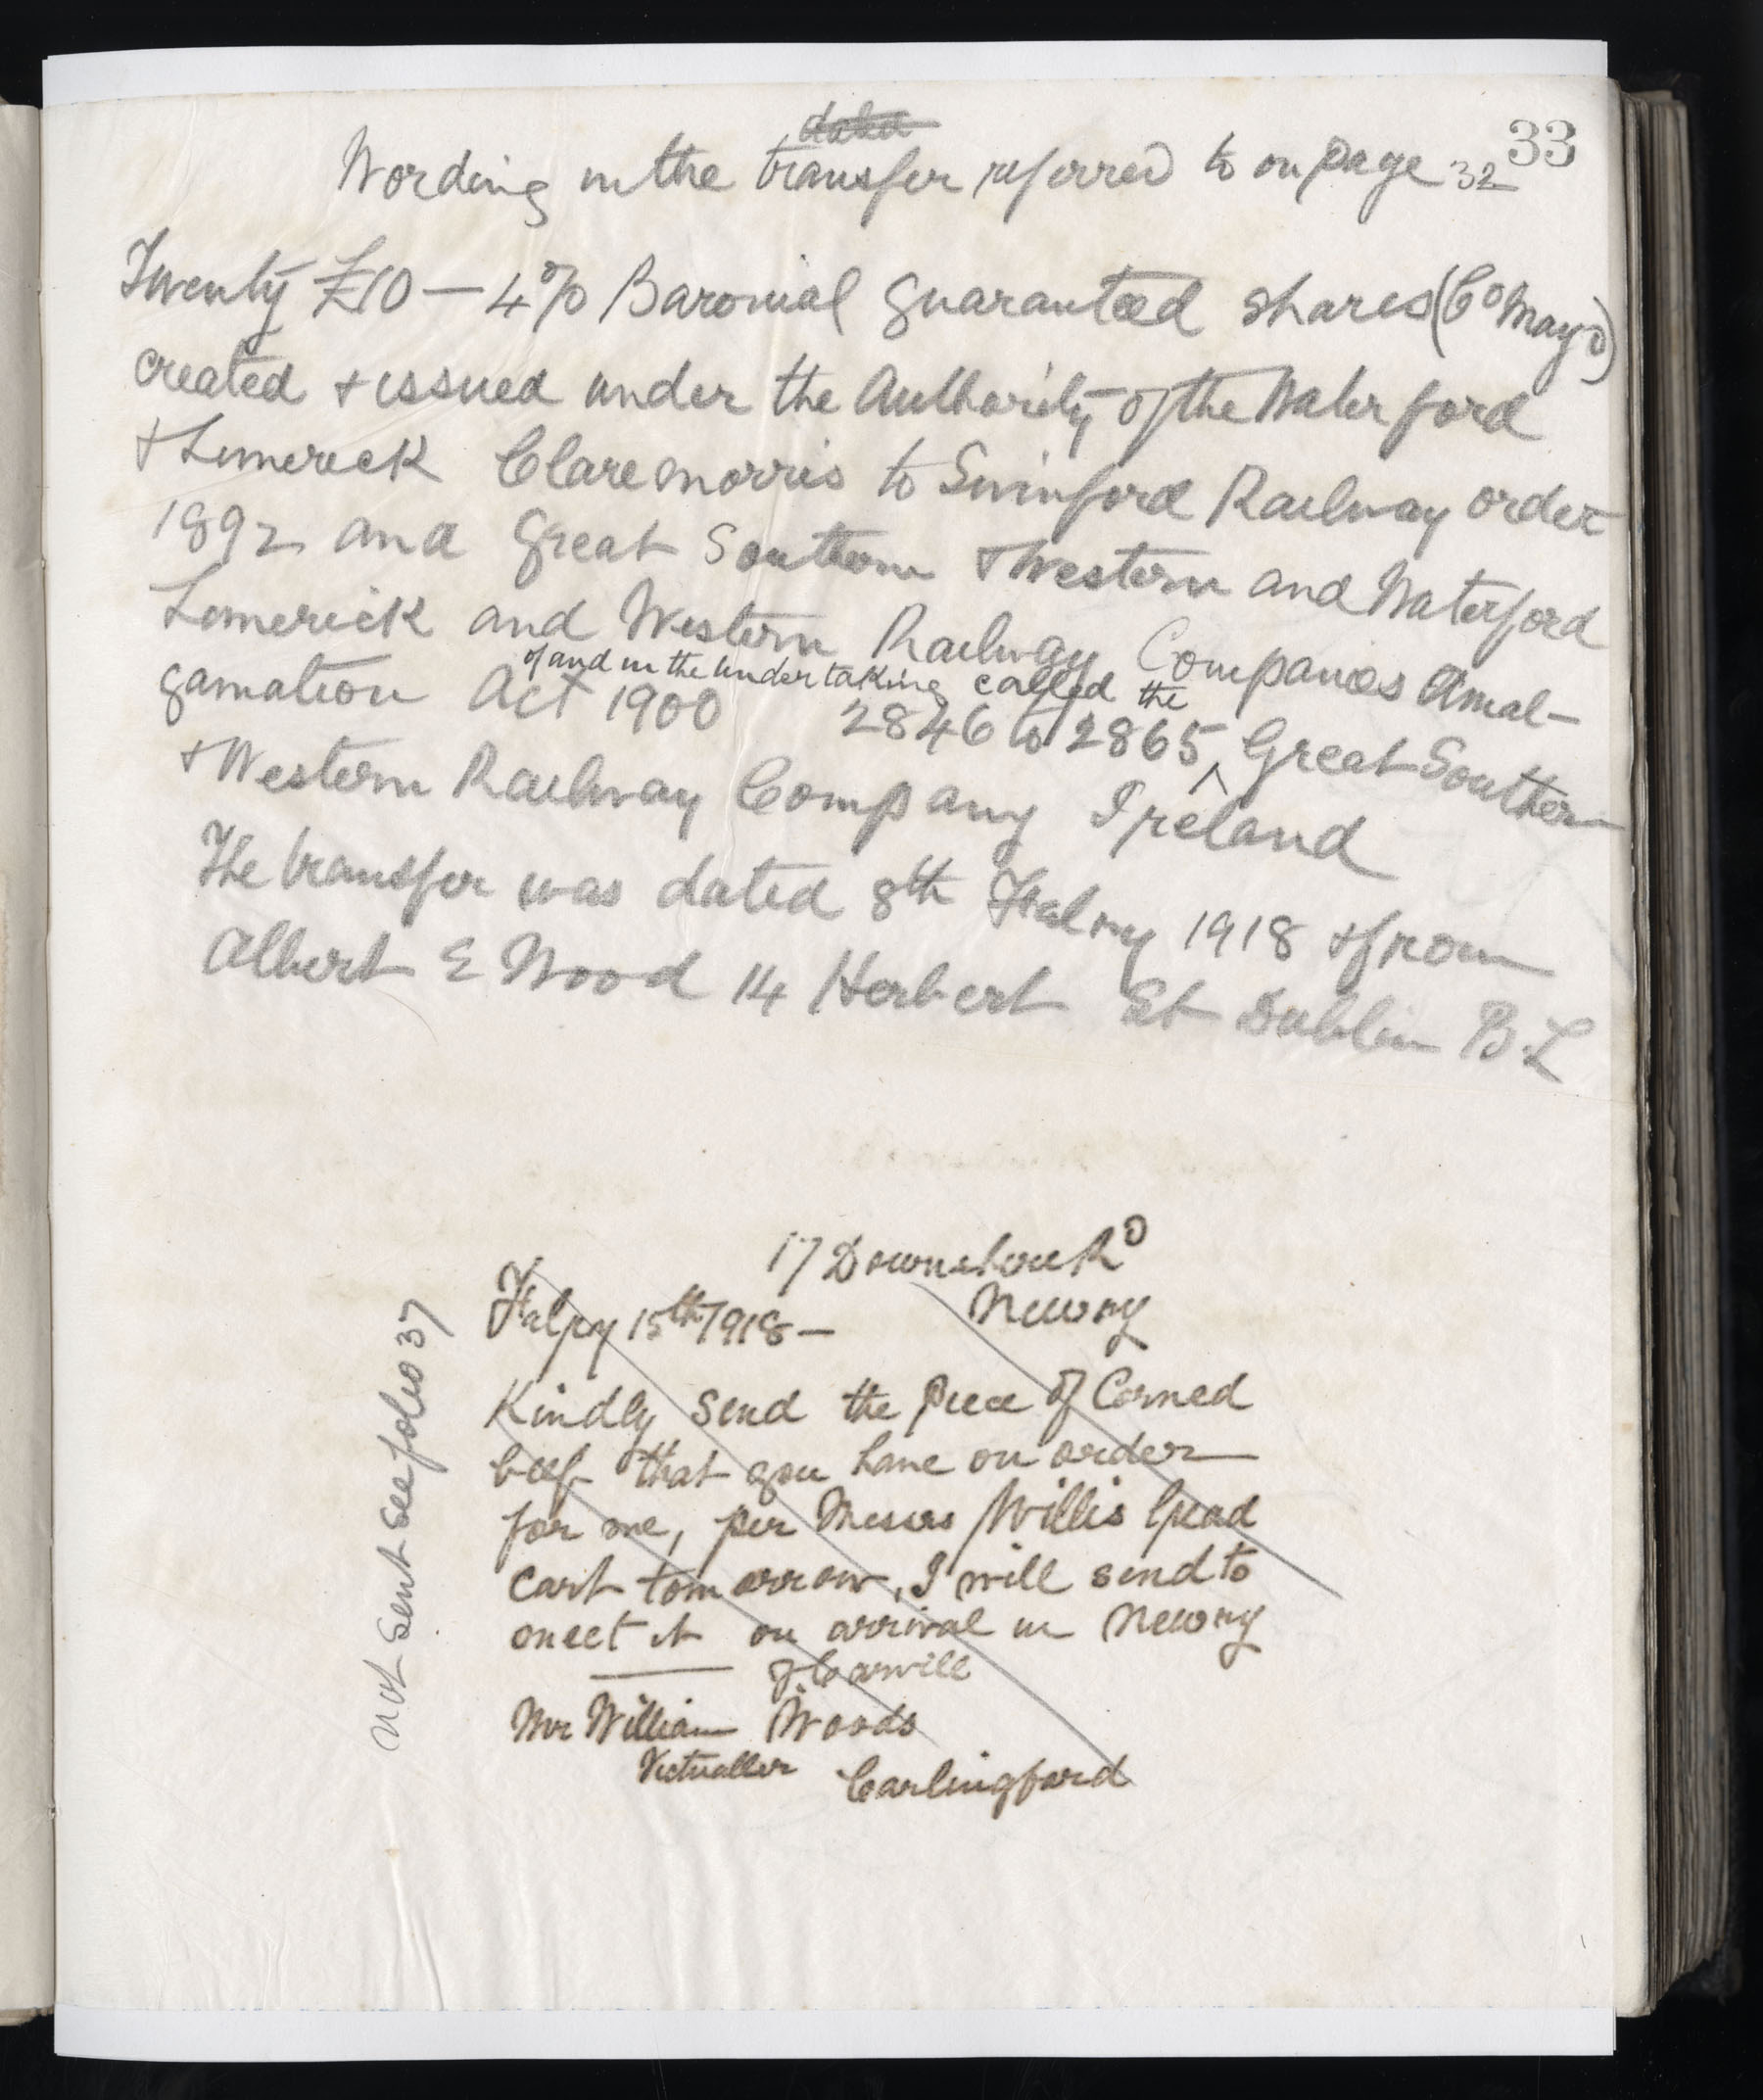 33
dated
Wording in the transfer referred to on page 32
Twenty £10 — 4% Baronial guaranteed shares (Co Mayo)
created + issued under the Authority of the Waterford
+ Limerick Claremorris to Swinford Railway order
1892 and Great Southern + Western and Waterford
Limerick and Western Railway Companies Amal-
of and in the undertaking called the
gamation Act 1900 2846 to 2865 ^ Great Southern
+ Western Railway Company Ireland
The transfer was dated 8th Febry 1918 + from
Albert E Wood 14 Herbert St Dublin B.L
17 Downshire Rd
Newry
Febry 15th/1918 —
Kindly send the piece of Corned
beef that you have on order
for me, per Messrs Willis bread
cart tomorrow, I will send to
meet it on arrival in Newry
Mr William Woods
Victualler Carlingford
Not sent see folio 37